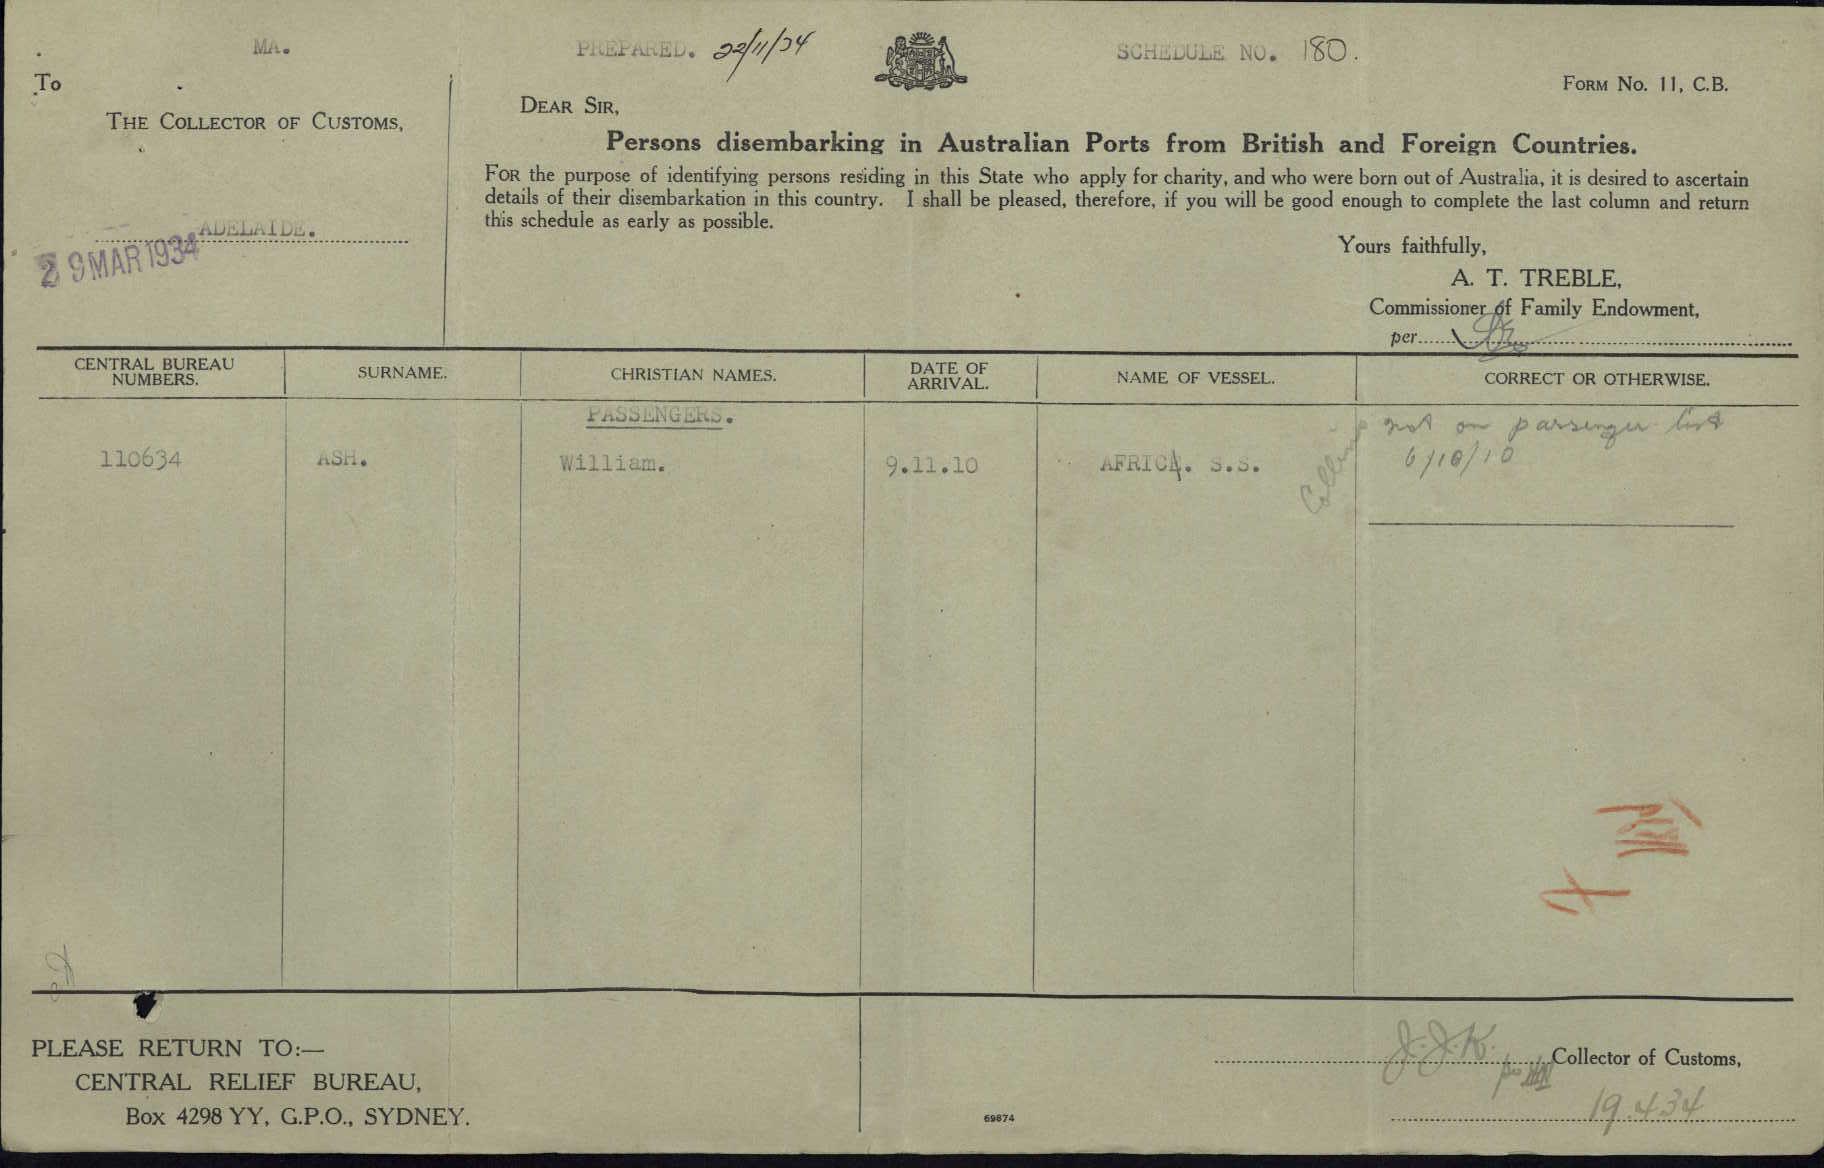 MA.
PREPARED. 22/11/34
SCHEDULE NO. 180.
To
FORM No. 11, C.B.
THE COLLECTOR OF CUSTOMS,
ADELAIDE.
29 MAR 1934
DEAR SIR,
Persons disembarking in Australian Ports from British and Foreign Countries.
FOR the purpose of identifying persons residing in this State who apply for charity, and who were born out of Australia, it is desired to ascertain
details of their disembarkation in this country. I shall be pleased, therefore, if you will be good enough to complete the last column and return
this schedule as early as possible.
Yours faithfully,
A. T. TREBLE,
Commissioner of Family Endowment,
per
CENTRAL BUREAU NUMBERS.
SURNAME.
CHRISTIAN NAMES.
DATE OF ARRIVAL.
NAME OF VESSEL.
CORRECT OR OTHERWISE.
PASSENGERS.
110634 ASH. William. 9.11.10 AFRICA. S.S.
not on passenger list
6/10/10
PLEASE RETURN TO:—
CENTRAL RELIEF BUREAU,
Box 4298 YY, G.P.O., SYDNEY.
69874
J.J.K.
Collector of Customs,
19.4.34